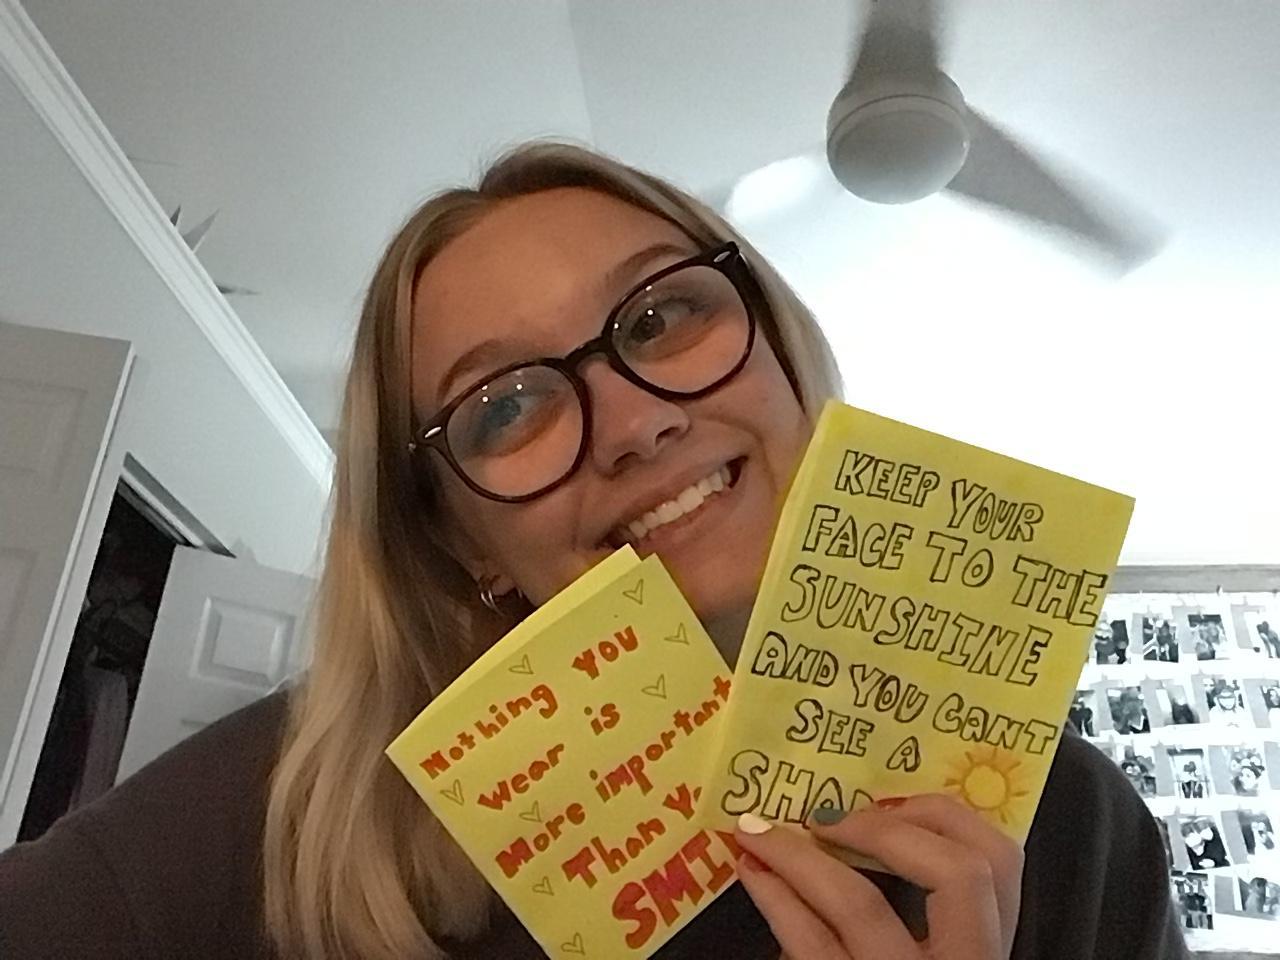 Nothing YOU
wear is
More important
Than
KEEP YOUR
FACE TO THE
SUNSHINE
AND YOU CANT
SEE A